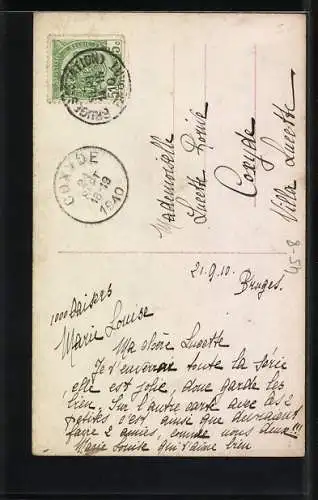 BRUGES (STATION)
COXYDE
21
SEPT
18-19
1910
Mademoiselle
Lucette
Coxyde
Villa Lucette
45-8
21.9.10.
Bruges.
1000 baisers
Marie Louise
Ma chère Lucette
Je t'enverrai toute la série,
elle est jolie, donc garde les
bien. Sur l'autre carte avec les 2
petites c'est ainsi que devraient
faire 2 amies, comme nous deux!!!
Marie Louise qui t'aime bien